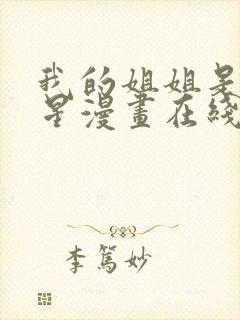 我的姐姐是
星漫畫在綫
李篤妙